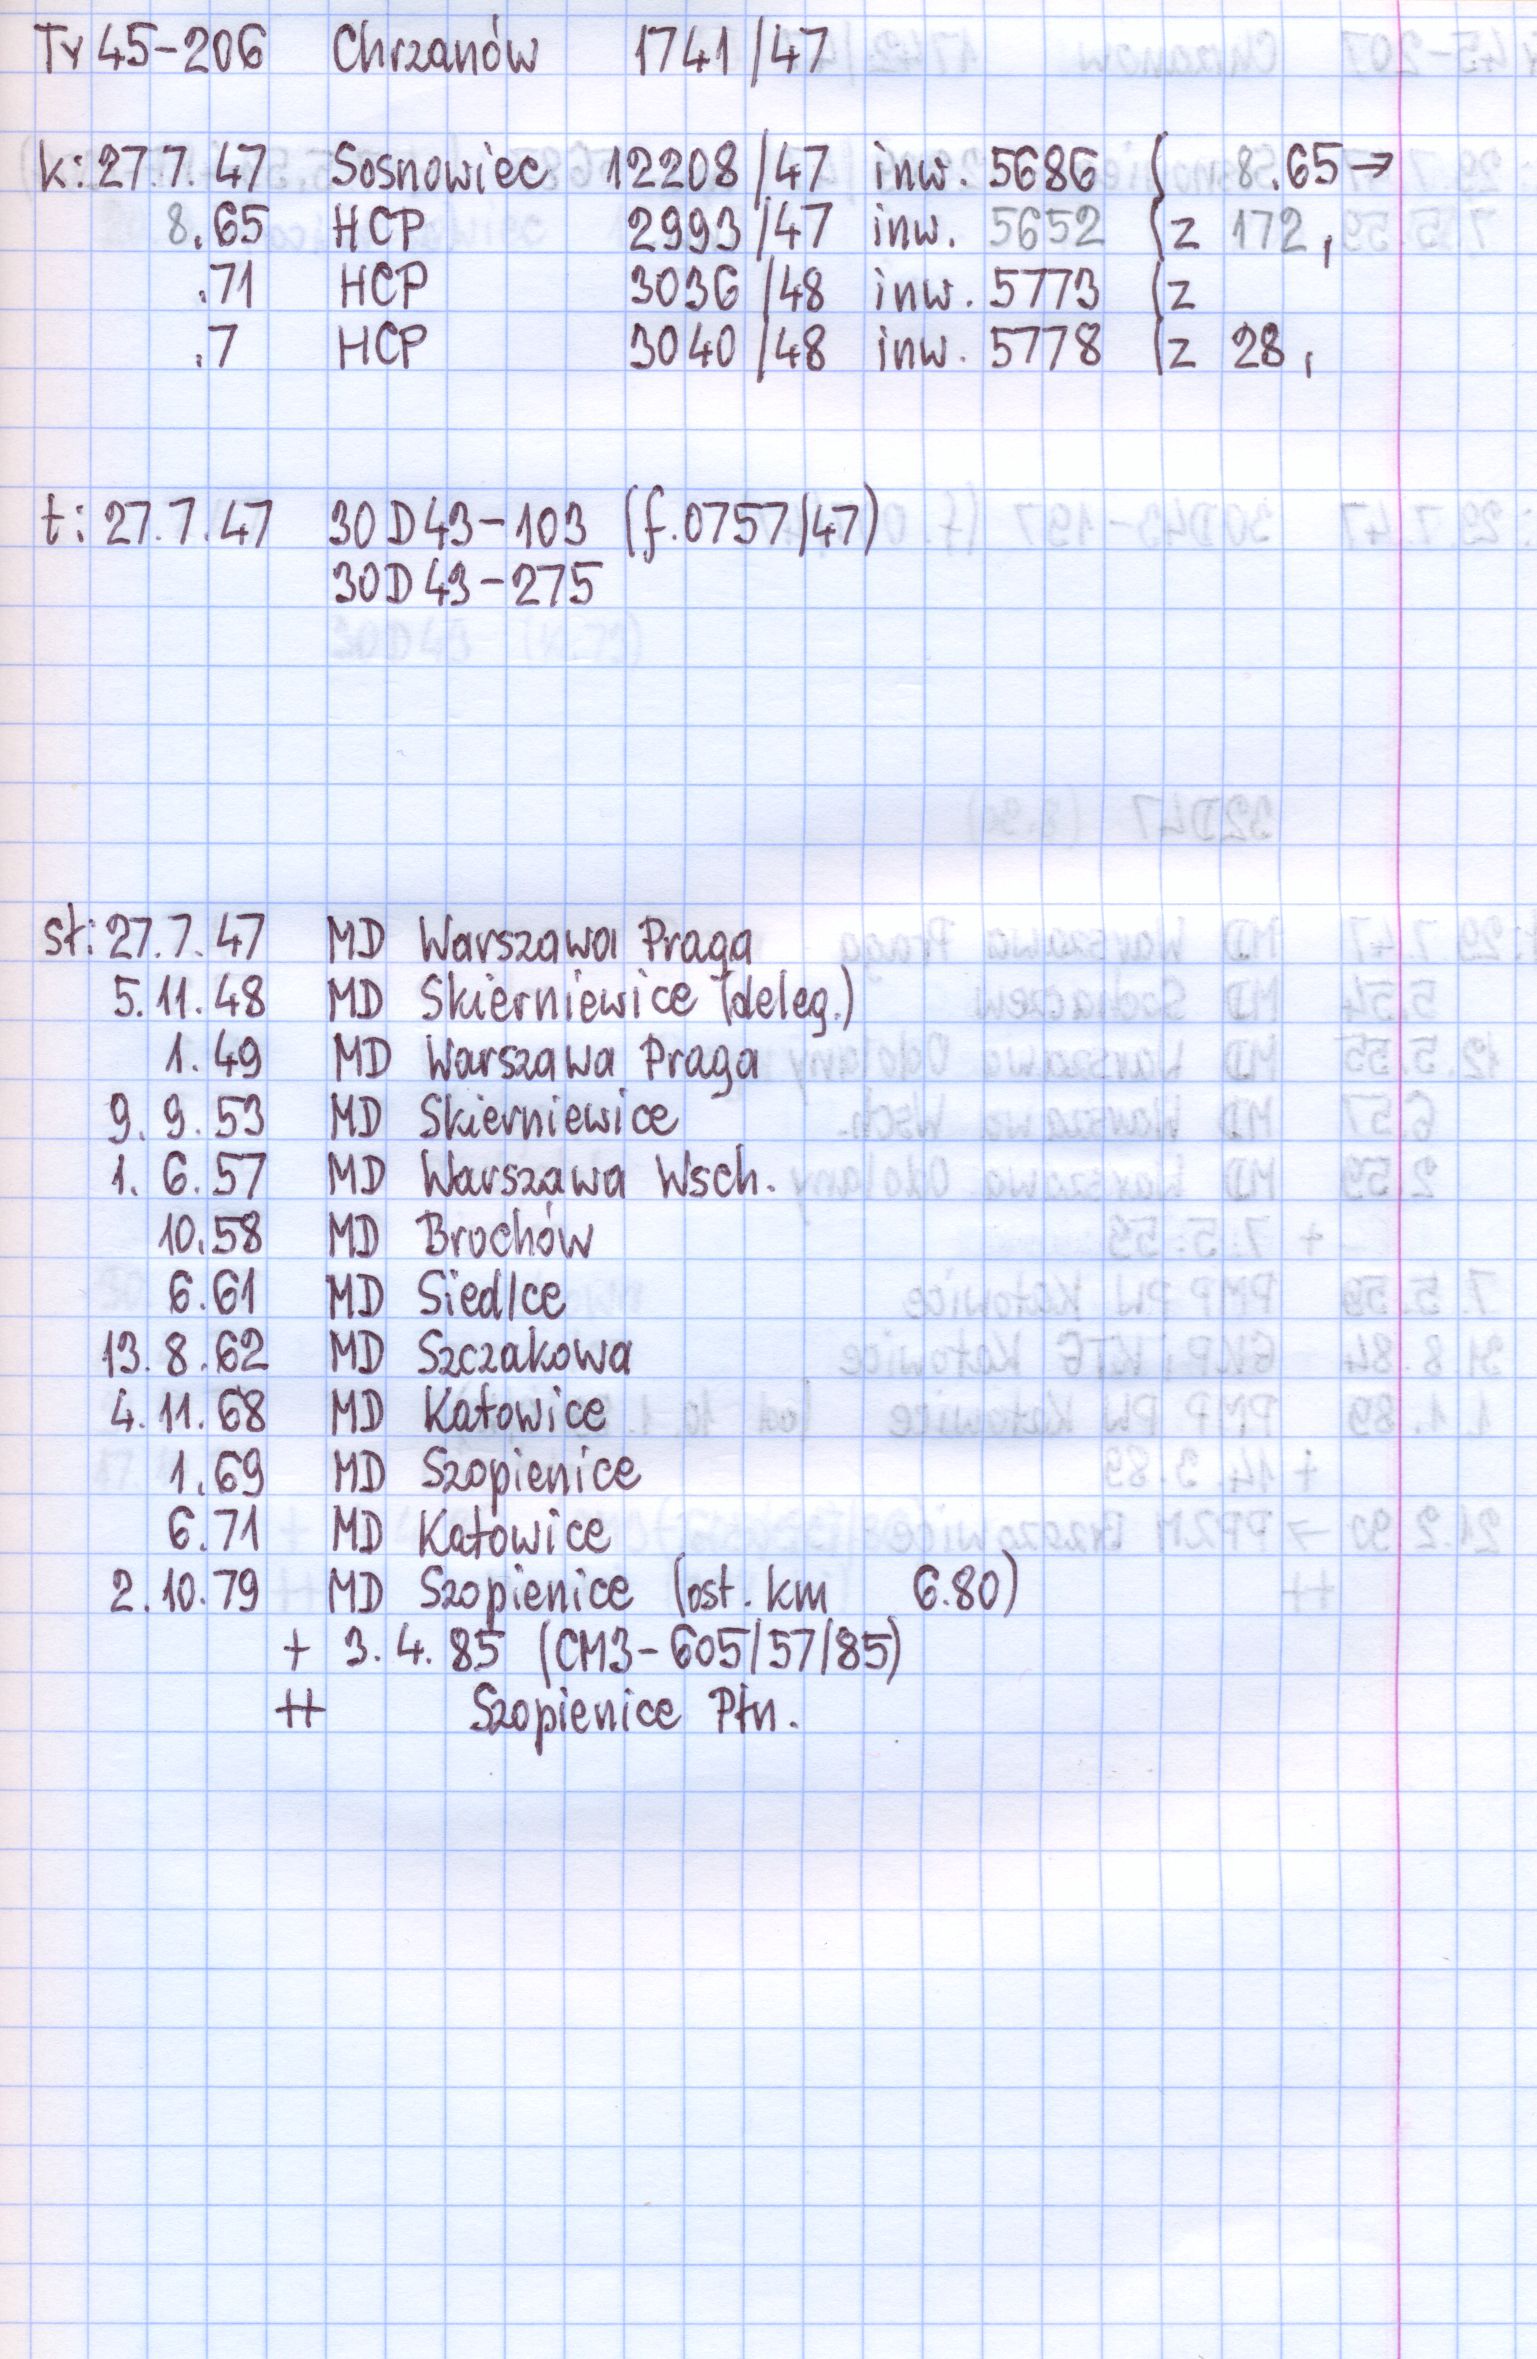 Ty 45-206 Chrzanów 1741/47
k: 27.7.47 Sosnowiec 12208/47 inw. 5686 ( 8.65→
8.65 HCP 2993/47 inw. 5652 (z 172,
.71 HCP 3036/48 inw. 5773 (z
.7 HCP 3040/48 inw. 5778 (z 28,
t: 27.7.47 30D43-103 (f.0757/47)
30D43-275
st: 27.7.47 MD Warszawa Praga
5.11.48 MD Skierniewice (deleg.)
1.49 MD Warszawa Praga
9.9.53 MD Skierniewice
1.6.57 MD Warszawa Wsch.
10.58 MD Brochów
6.61 MD Siedlce
13.8.62 MD Szczakowa
4.11.68 MD Katowice
1.69 MD Szopienice
6.71 MD Katowice
2.10.79 MD Szopienice (ost. km 6.80)
+ 3.4.85 (CM3-605/57/85)
++ Szopienice Płn.